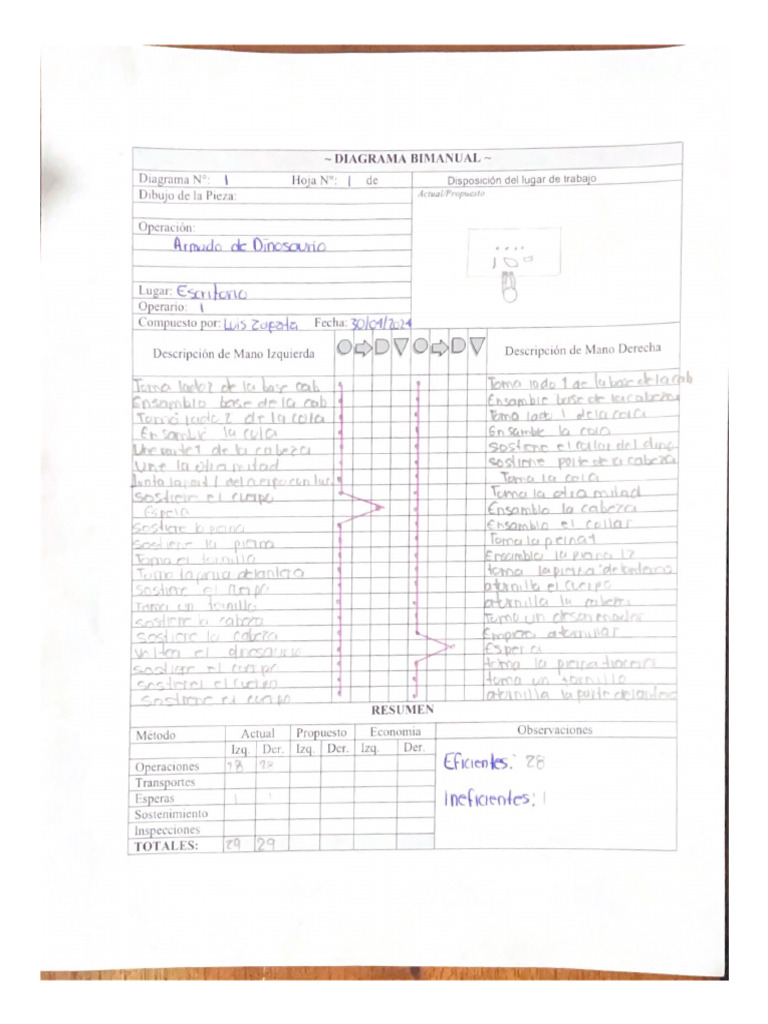 ~ DIAGRAMA BIMANUAL ~
Diagrama N°: 1 Hoja N°: 1 de
Disposición del lugar de trabajo
Dibujo de la Pieza:
Actual/Propuesto
Operación:
Armado de Dinosaurio
Lugar: Escritorio
Operario: 1
Compuesto por: Luis Zapata Fecha: 30/01/2024
Descripción de Mano Izquierda
Descripción de Mano Derecha
Toma lado 2 de la base cab Toma lado 1 de la base de la cab
Ensamblo base de la cab Ensamble base de la cabeza
Toma lado 2 de la cola Toma lado 1 de la cola
Ensamble la cola Ensamble la cola
Une parte 1 de la cabeza Sostiene el collar del dino
Une la otra mitad Sostiene parte de la cabeza
Junta la part 1 del cuerpo con luc Toma la cola
Sostiene el cuerpo Toma la otra mitad
Espera Ensambla la cabeza
Sostiene la Ensambla el collar
Sostiene la Toma la
Toma el tornillo Ensambla la
Toma la delantera toma la delantera
Sostiene el cuerpo atornilla el cuerpo
Toma un tornillo atornilla la
Sostiene la cabeza Toma un
Sostiene la cabeza Empieza atornillar
el dinosaurio Espera
Sostiene el cuerpo toma la
Sostiene el cuerpo toma un tornillo
Sostiene el cuerpo atornilla la parte delantera
RESUMEN
Método Actual Propuesto Economía Observaciones
Izq. Der. Izq. Der. Izq. Der.
Operaciones 28 28
Eficientes: 28
Transportes
Esperas 1 1
Ineficientes: 1
Sostenimiento
Inspecciones
TOTALES: 29 29